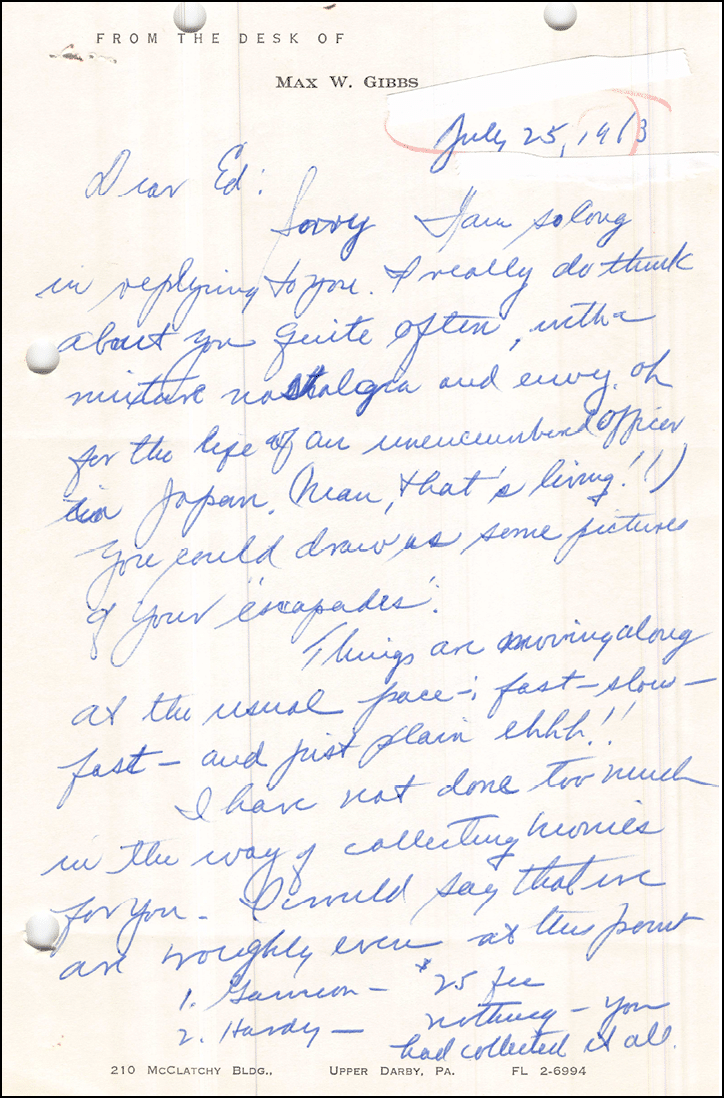 FROM THE DESK OF
MAX W. GIBBS
July 25, 1963
Dear Ed:
Sorry I am so long
in replying to you. I really do think
about you quite often, with a
mixture nostalgia and envy. Oh
for the life of an unencumbered officer
in Japan. (Man, that's living!!)
You could draw us some pictures
of your 'escapades'.
Things are moving along
at the usual pace -; fast - slow -
fast - and just plain ehhh!!
I have not done too much
in the way of collecting monies
for you - I would say that we
are roughly even at this point
1. - $25 fee
2. Hardy - nothing - you
had collected it all.
210 MCCLATCHY BLDG., UPPER DARBY, PA. FL 2-6994